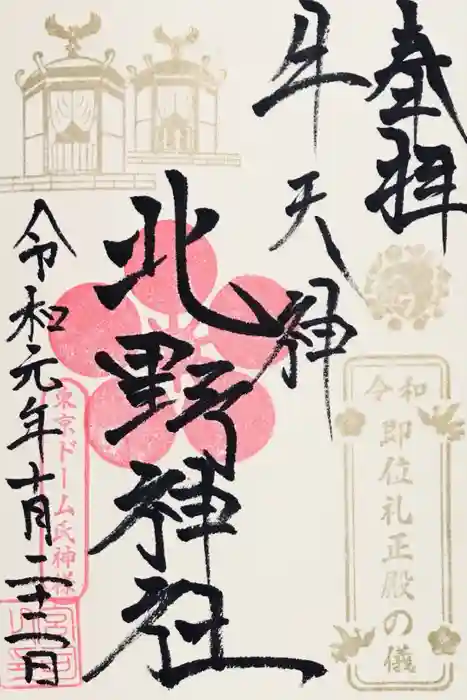 奉拝
牛天神
北野神社
令和元年十月二十二日
東京ドーム氏神様
令和
即位礼正殿の儀